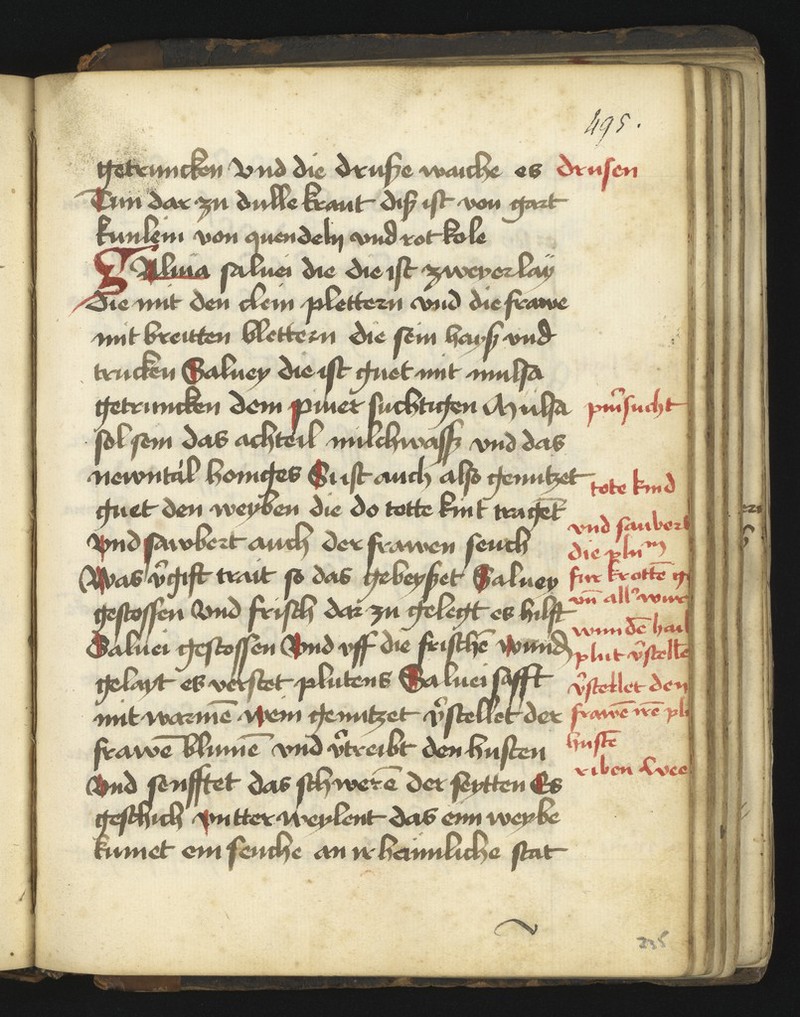 495.
getruncken Vnd die drusße waiche es drusen
Tun dar zu dulle kraut diß ist von gart
kunlein von quendeln vnd rot kole
SAluia saluei die die ist zweyerlaÿ
die mit den clein plettern vnd die frawe
mit breitten blettern die sein hayß vnd
trucken Saluey die ist guet mit mulsa
getruncken dem piuer suchtigen Mulsa
sol sein das achteil milchwasß vnd das
newntal honiges Si ist auch also genutzet
guet den weyben die do totte kint tragēt
Vnd sawbert auch der frawen seuch
Was v̾gift trait so das gebeysßet Saluey
gestossen Vnd frisch dar zu gelegt es hilft
Saluei gestossen Vnd vff die frischē wund
gelayt es verstet plutens Saluei safft
mit warmē wein genutzet v̾stellet der
frawē blumē vnd v̾treibt den husten
Vnd senfftet das schwerē der seytten Es
geschich vntter weylent das einn weybe
kumet ein seuche an ir heimliche stat
tote kind
vnd saubert
die plu
fur krottē
vn̄ all
wundē hail
plut v̾stelle
v̾stellet den
frawē irē pl
hustē
riben
235